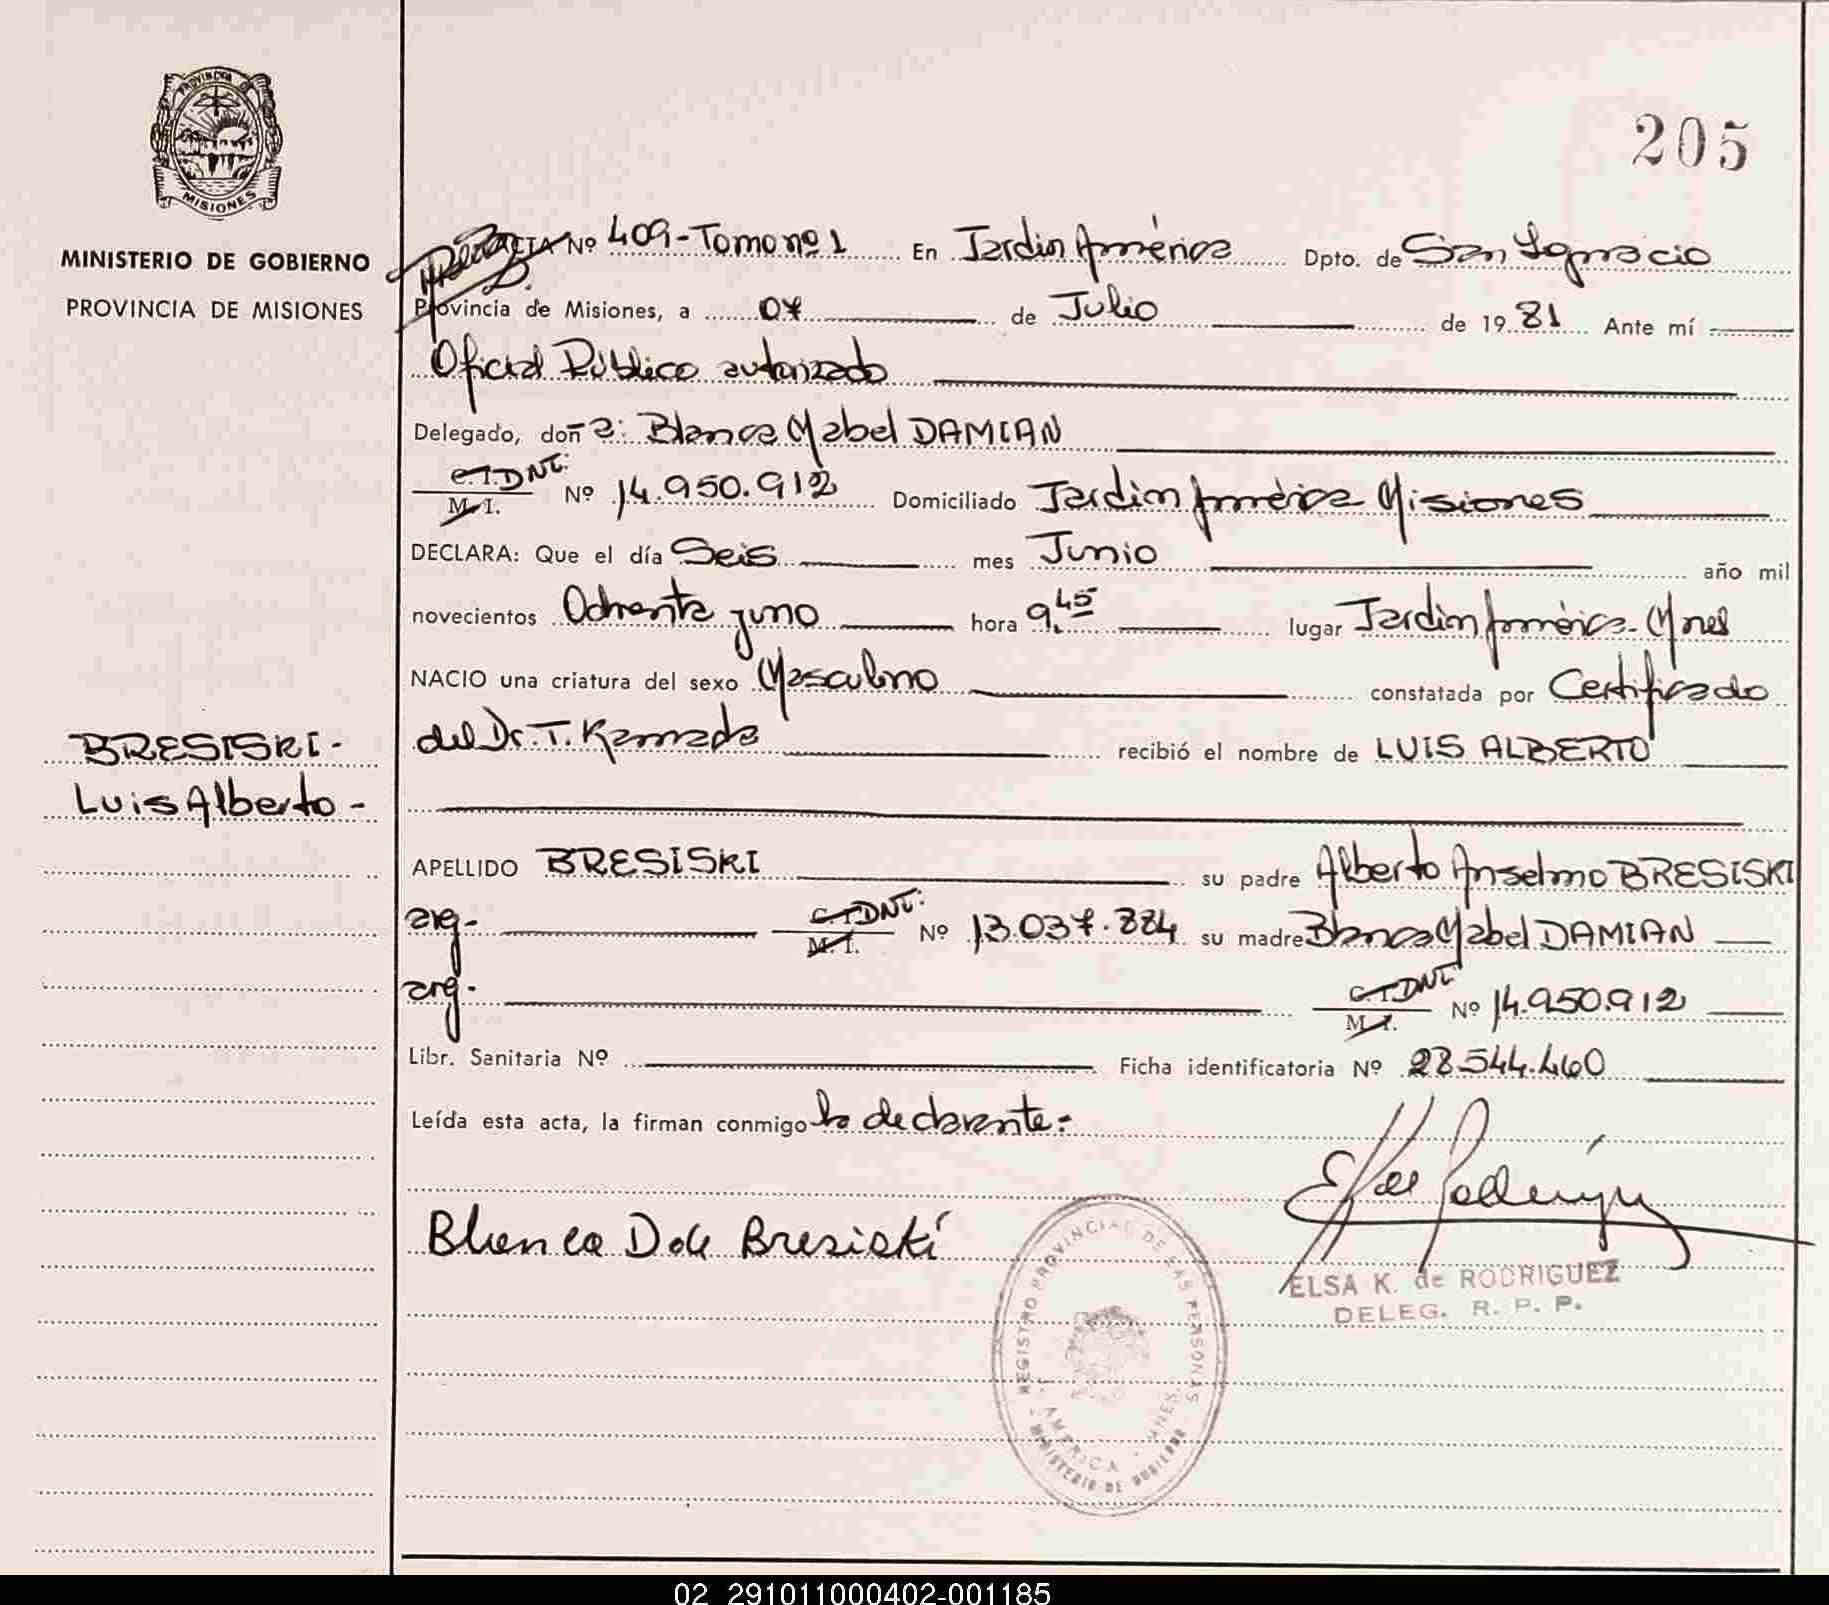 PROVINCIA DE
MISIONES
MINISTERIO DE GOBIERNO
PROVINCIA DE MISIONES
205
ACTA Nº 409-Tomo nº 1 En Jardin América Dpto. de San Ignacio
Provincia de Misiones, a 07 de Julio de 1981 Ante mí
Oficial Público autorizado
Delegado, doña: Blanca Mabel DAMIAN
C.I. DNI: M.I. Nº 14.950.912 Domiciliado Jardin América Misiones
DECLARA: Que el día Seis mes Junio año mil
novecientos Ochenta y uno hora 9,45 lugar Jardin América-Mnes
NACIO una criatura del sexo Masculino constatada por Certificado
del Dr. T. Kamada recibió el nombre de LUIS ALBERTO
BRESISKI-
Luis Alberto-
APELLIDO BRESISKI su padre Alberto Anselmo BRESISKI
arg- C.I. DNI: M.I. Nº 13.037.884 su madre Blanca Mabel DAMIAN
arg- C.I. DNI M.I. Nº 14.950.912
Libr. Sanitaria Nº Ficha identificatoria Nº 28.544.460
Leída esta acta, la firman conmigo la declarante:
Blanca D de Bresiski
ELSA K. de RODRIGUEZ
DELEG. R. P. P.
REGISTRO PROVINCIAL DE LAS PERSONAS
J. AMERICA - MNES.
MINISTERIO DE GOBIERNO
02_291011000402-001185